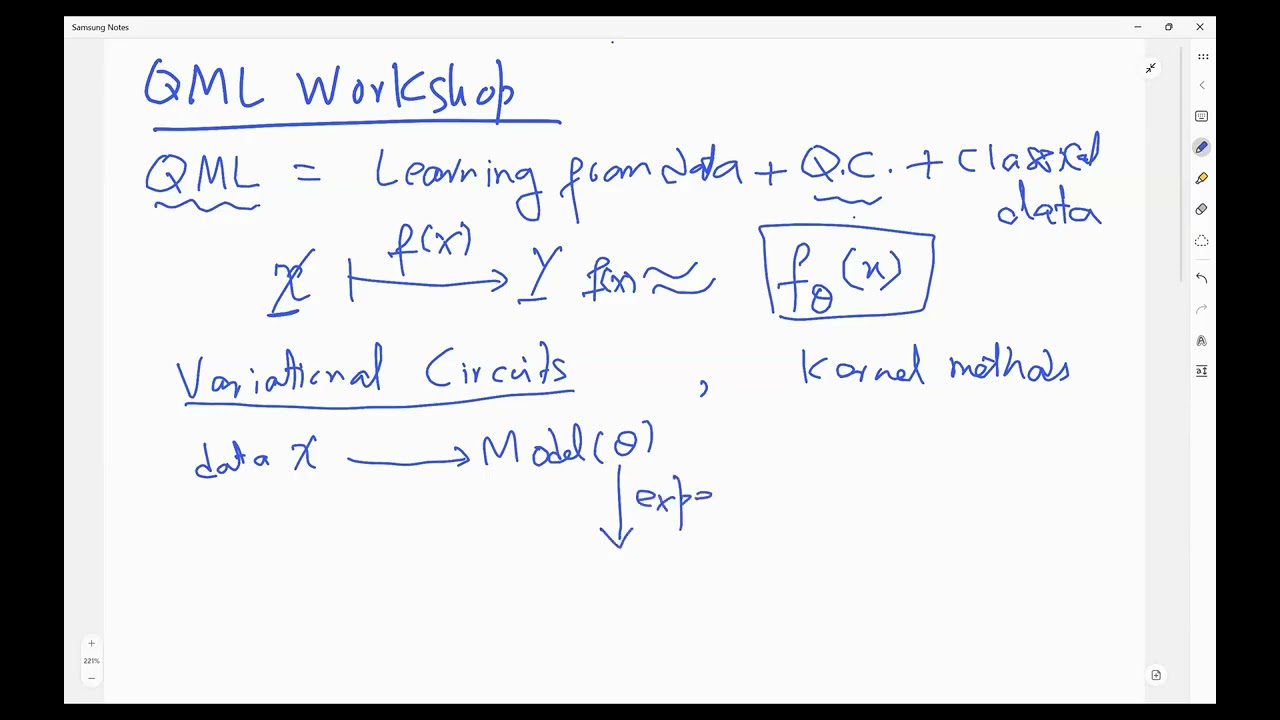 Samsung Notes
QML Workshop
QML = Learning from data + Q.C. + Classical
data
f(x)
X ⟼ Y f(x) ≈ fθ(x)
Variational Circuits , Kernel methods
data X ⟶ Model(θ)
↓ expe
221%